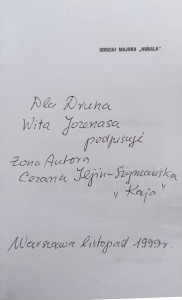 ODDZIAŁ MAJORA „HUBALA”
Dla Druha
Wita Jozenasa
podpisuje
Żona Autora
Cezaria Iljin-Szymańska
„Kaja”
Warszawa listopad 1999r.